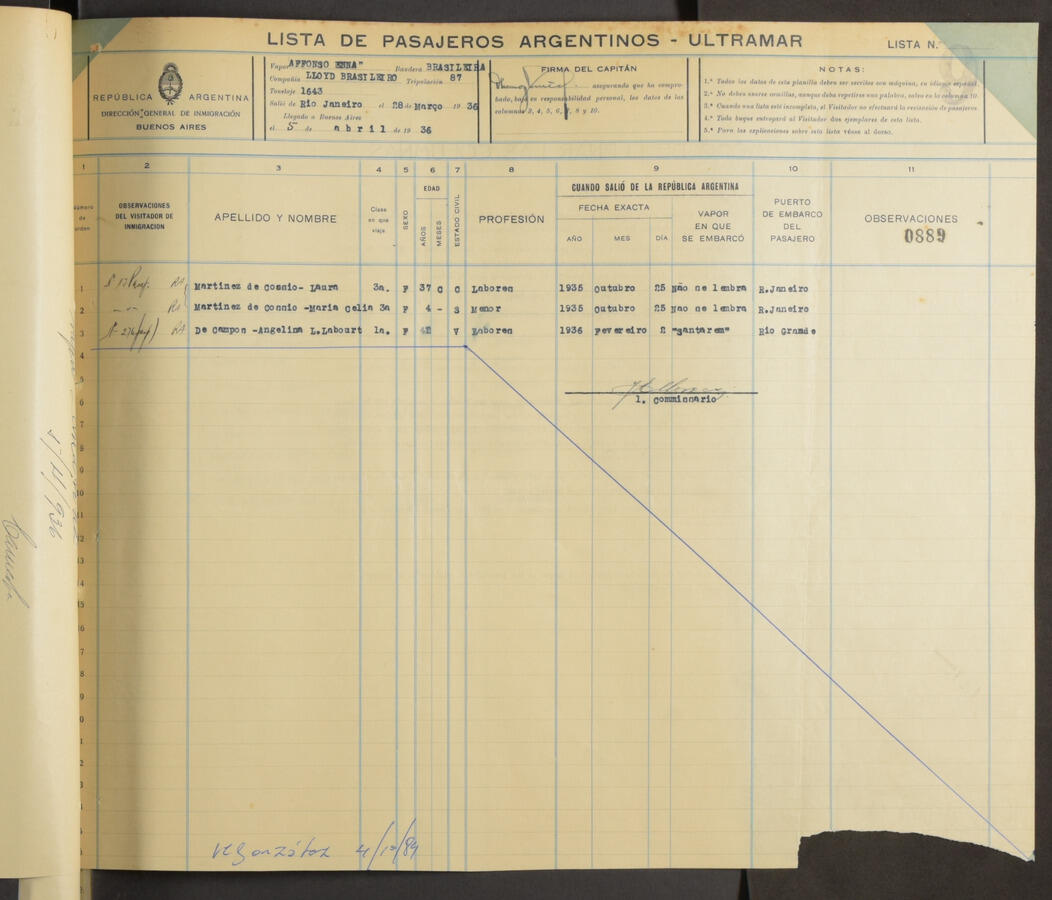 LISTA DE PASAJEROS ARGENTINOS - ULTRAMAR
LISTA N.º
REPÚBLICA ARGENTINA
DIRECCIÓN GENERAL DE INMIGRACIÓN
BUENOS AIRES
Vapor AFFONSO PENNA" Bandera BRASILEIRA
Compañía LLOYD BRASILEIRO Tripulación 87
Tonelaje 1643
Salió de Rio Janeiro el 28 de Março 1936
Llegado a Buenos Aires
el 5 de abril de 1936
FIRMA DEL CAPITÁN
asegurando que ha compro-
tado, bajo su responsabilidad personal, los datos de las
columnas 3, 4, 5, 6, 7, 8 y 10.
NOTAS:
1.ª Todos los datos de esta planilla deben ser escritos con máquina, en idioma español.
2.ª No deben usarse comillas, aunque deba repetirse una palabra, salvo en la columna 10.
3.ª Cuando una lista esté incompleta, el Visitador no efectuará la revisación de pasajeros
4.ª Todo buque entregará al Visitador dos ejemplares de esta lista.
5.ª Para las explicaciones sobre esta lista véase al dorso.
1 2 3 4 5 6 7 8 9 10 11
Número de orden
OBSERVACIONES DEL VISITADOR DE INMIGRACIÓN
APELLIDO Y NOMBRE
Clase en que viaja
SEXO
EDAD
AÑOS
MESES
ESTADO CIVIL
PROFESIÓN
CUANDO SALIÓ DE LA REPÚBLICA ARGENTINA
FECHA EXACTA
AÑO MES DÍA
VAPOR EN QUE SE EMBARCÓ
PUERTO DE EMBARCO DEL PASAJERO
OBSERVACIONES
0889
1 Martinez de Cosnio- Laura 3a. F 37 C C Labores 1935 Outubro 25 Não se lembra R.Janeiro
2 Martinez de Connio -Maria Celia 3a F 4 - S Menor 1935 Outubro 25 Nao se lembra R.Janeiro
3 De Campos -Angelina L.Labourt 1a. F 42 V Labores 1936 Fevereiro 2 "Santarem" Rio Grande
1. Commissario
4
5
6
7
8
9
10
11
12
13
14
15